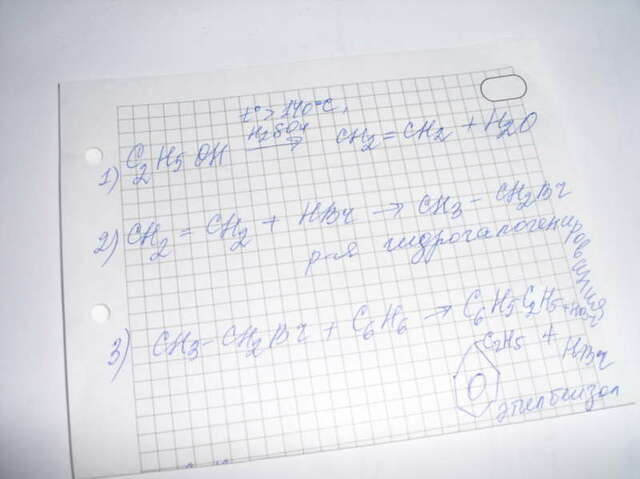 t°>140°C,
H2SO4
1) C2H5OH → CH2=CH2 + H2O
2) CH2=CH2 + HBr → CH3-CH2Br
р-я гидрогалогенирования
3) CH3-CH2Br + C6H6 → C6H5C2H5
C2H5 + HBr
этилбензол